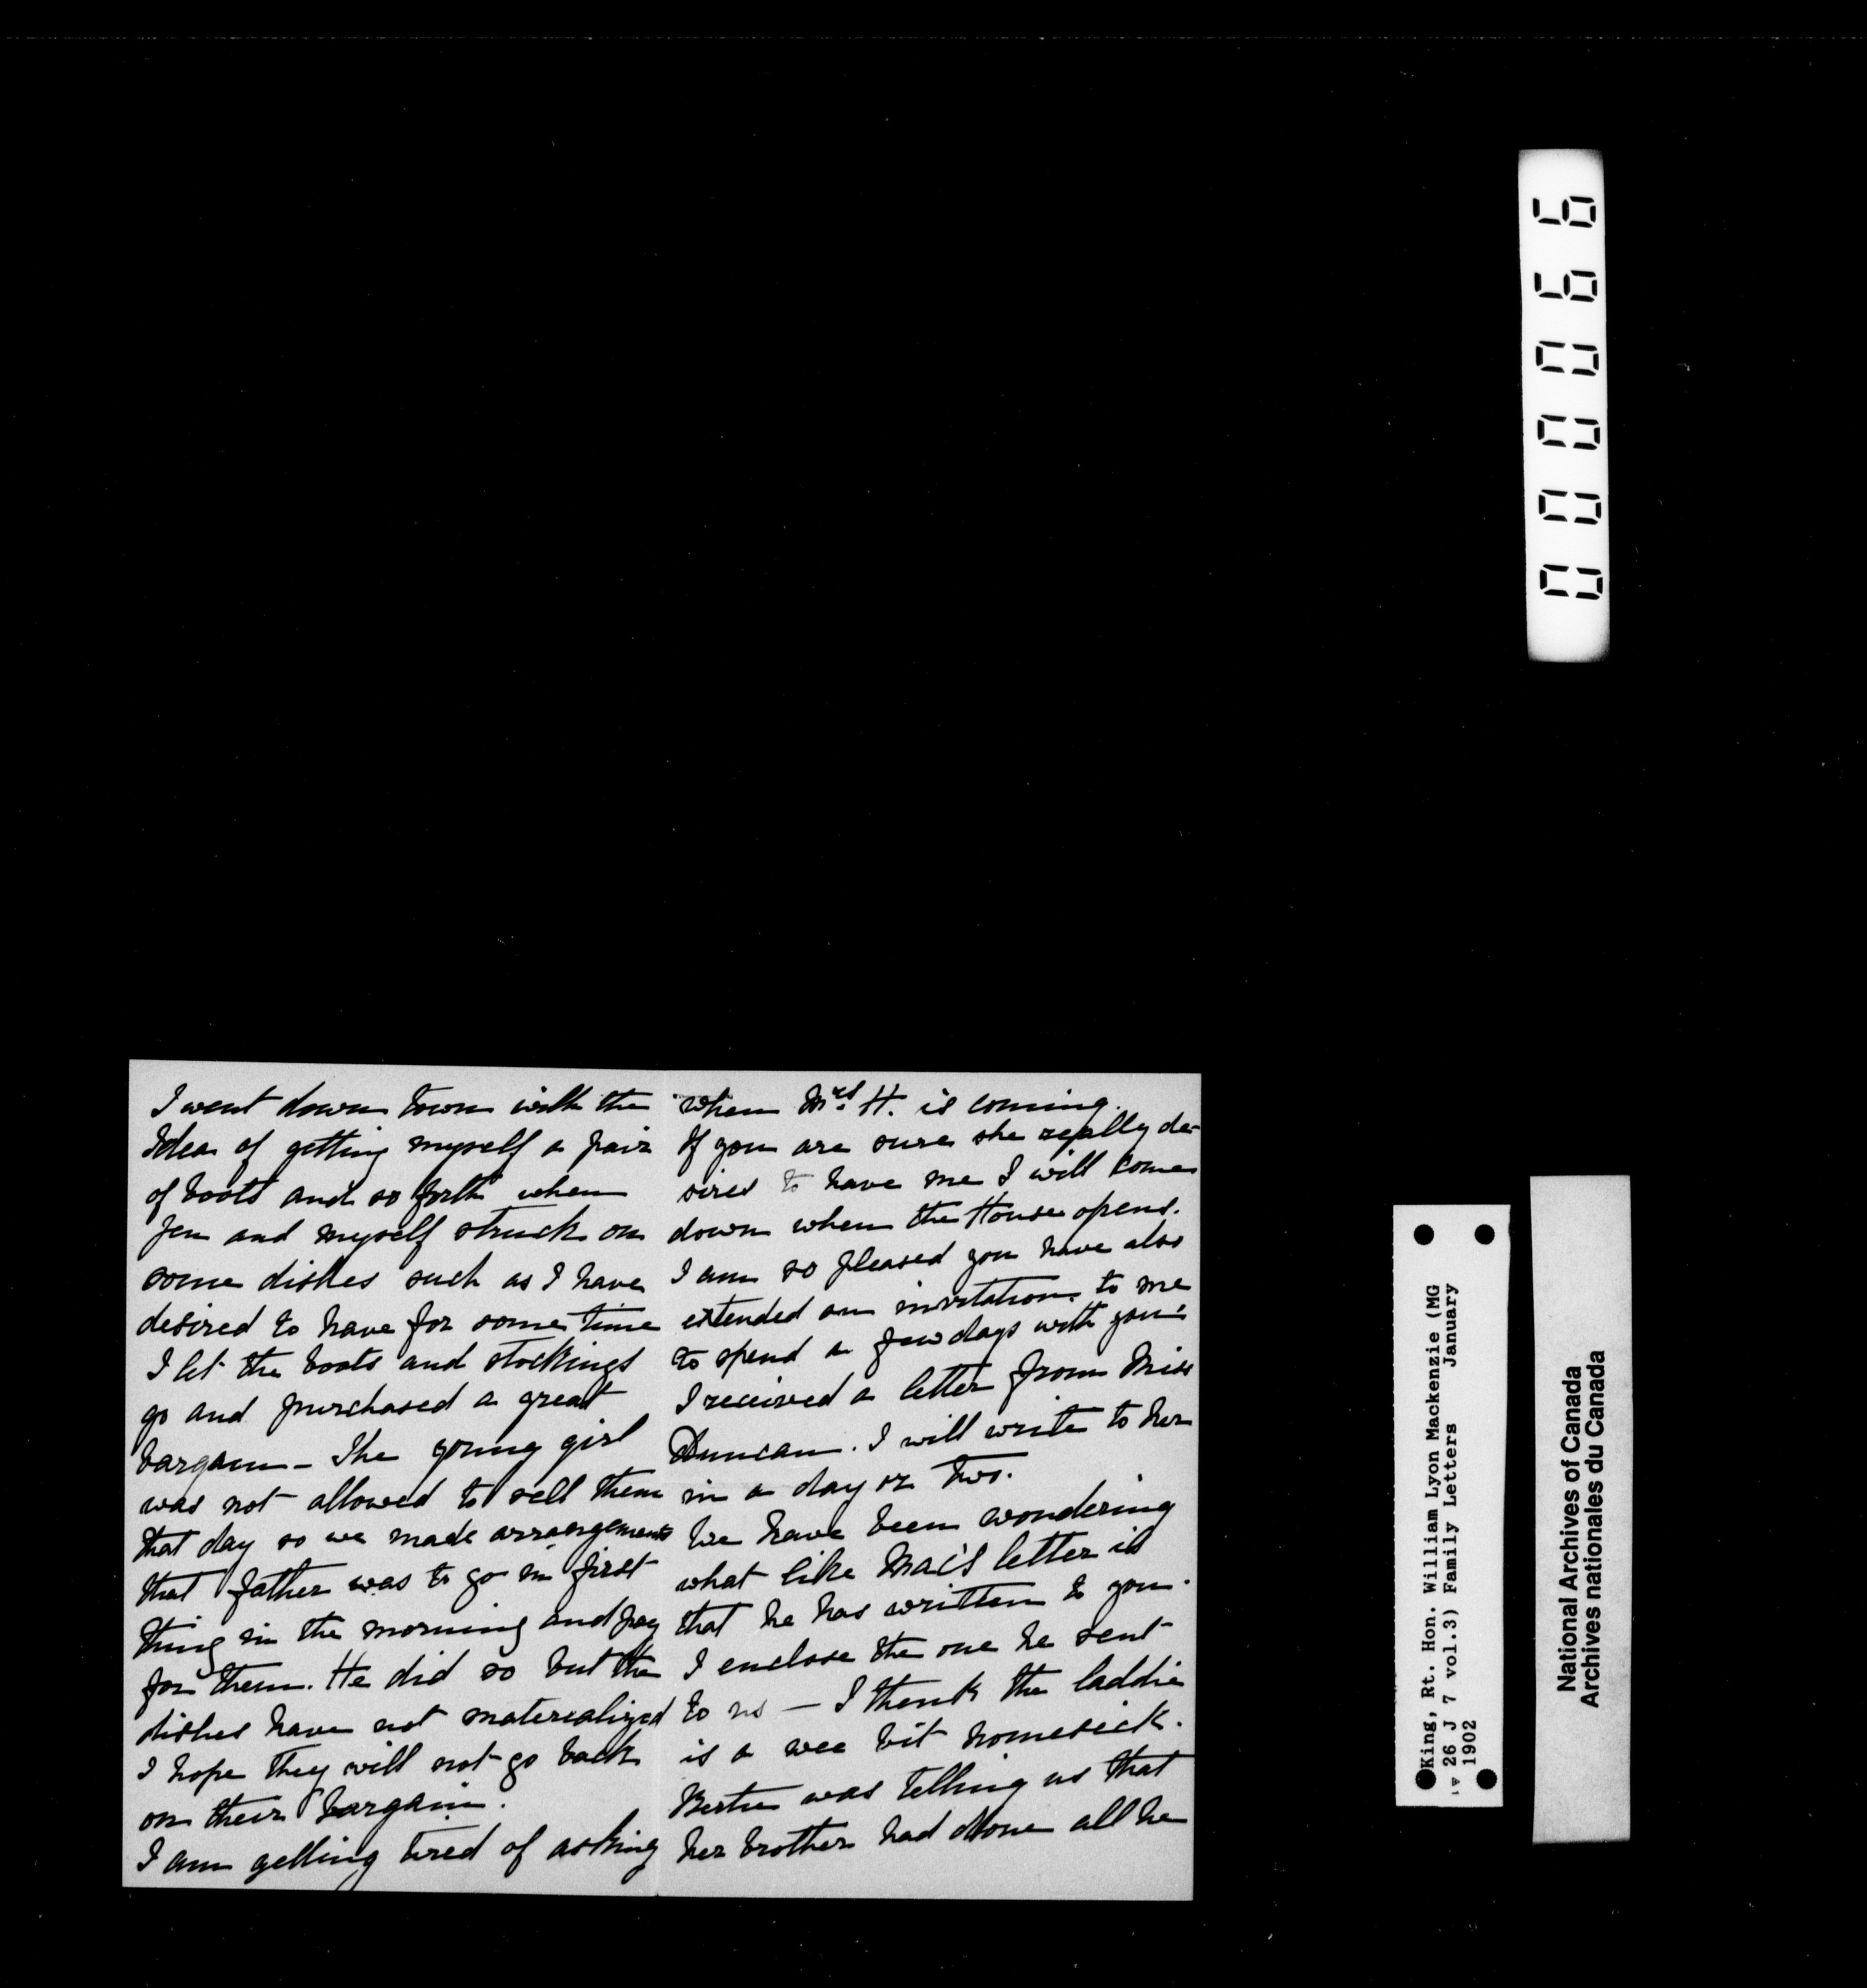 I went down town with the
Idea of getting myself a pair
of boots and so forth when
Jen and myself struck on
some dishes such as I have
desired to have for some time
I let the boots and stockings
go and purchased a great
bargain – The young girl
was not allowed to sell them
that day so we made arrangements
that father was to go in first
thing in the morning and pay
for them. He did so but the
dishes have not materialized
I hope they will not go back
on their bargain.
I am getting tired of asking
when Mrs. H. is coming.
If you are sure she really de-
sires to have me I will come
down when the House opens.
I am so pleased you have also
extended an invitation to me
to spend a few days with you.
I received a letter from Miss
Duncan. I will write to her
in a day or two.
We have been wondering
what like Mac's letter is
that he has written to you.
I enclose the one he sent
to us – I think the laddie
is a wee bit homesick.
Bertie was telling us that
her brother had done all he
000066
King, Rt. Hon. William Lyon Mackenzie (MG
26 J 7 vol.3) Family Letters January
1902
National Archives of Canada
Archives nationales du Canada